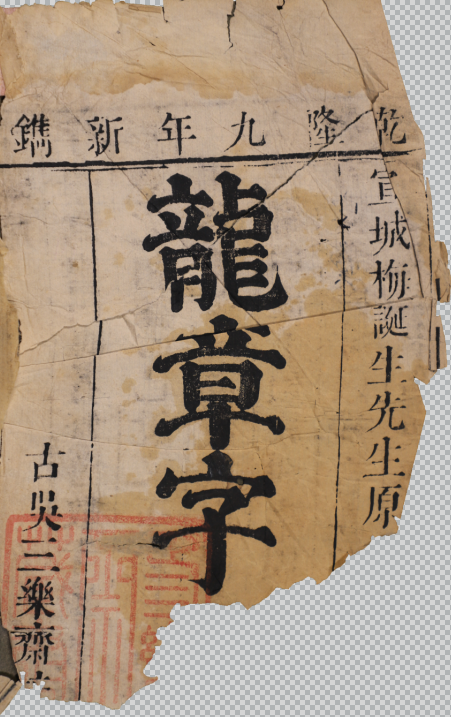 乾隆九年新鐫
宣城梅誕生先生原
龍章字
古吳三樂齋